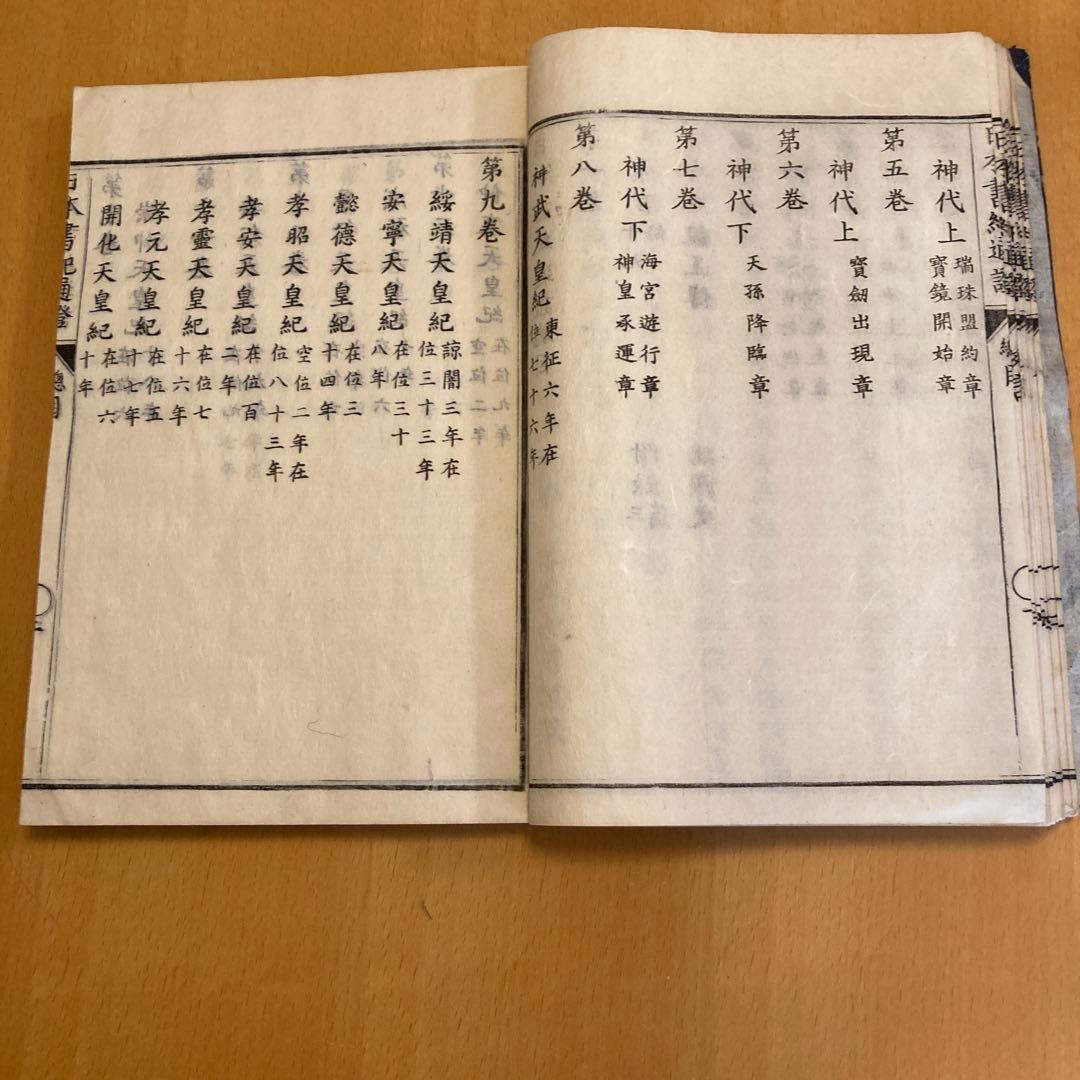 日本書紀通證
神代上 瑞珠盟約章
寶鏡開始章
第五卷
神代上 寶劍出現章
第六卷
神代下 天孫降臨章
第七卷
神代下 海宮遊行章
神皇承運章
第八卷
神武天皇紀 東征六年在
位七十六年
第九卷
綏靖天皇紀 諒闇三年在
位三十三年
安寧天皇紀 在位三十
八年
懿德天皇紀 在位三
十四年
孝昭天皇紀 空位二年在
位八十三年
孝安天皇紀 在位百
二年
孝靈天皇紀 在位七
十六年
孝元天皇紀 在位五
十七年
開化天皇紀 在位六
十年
日本書紀通證 總目